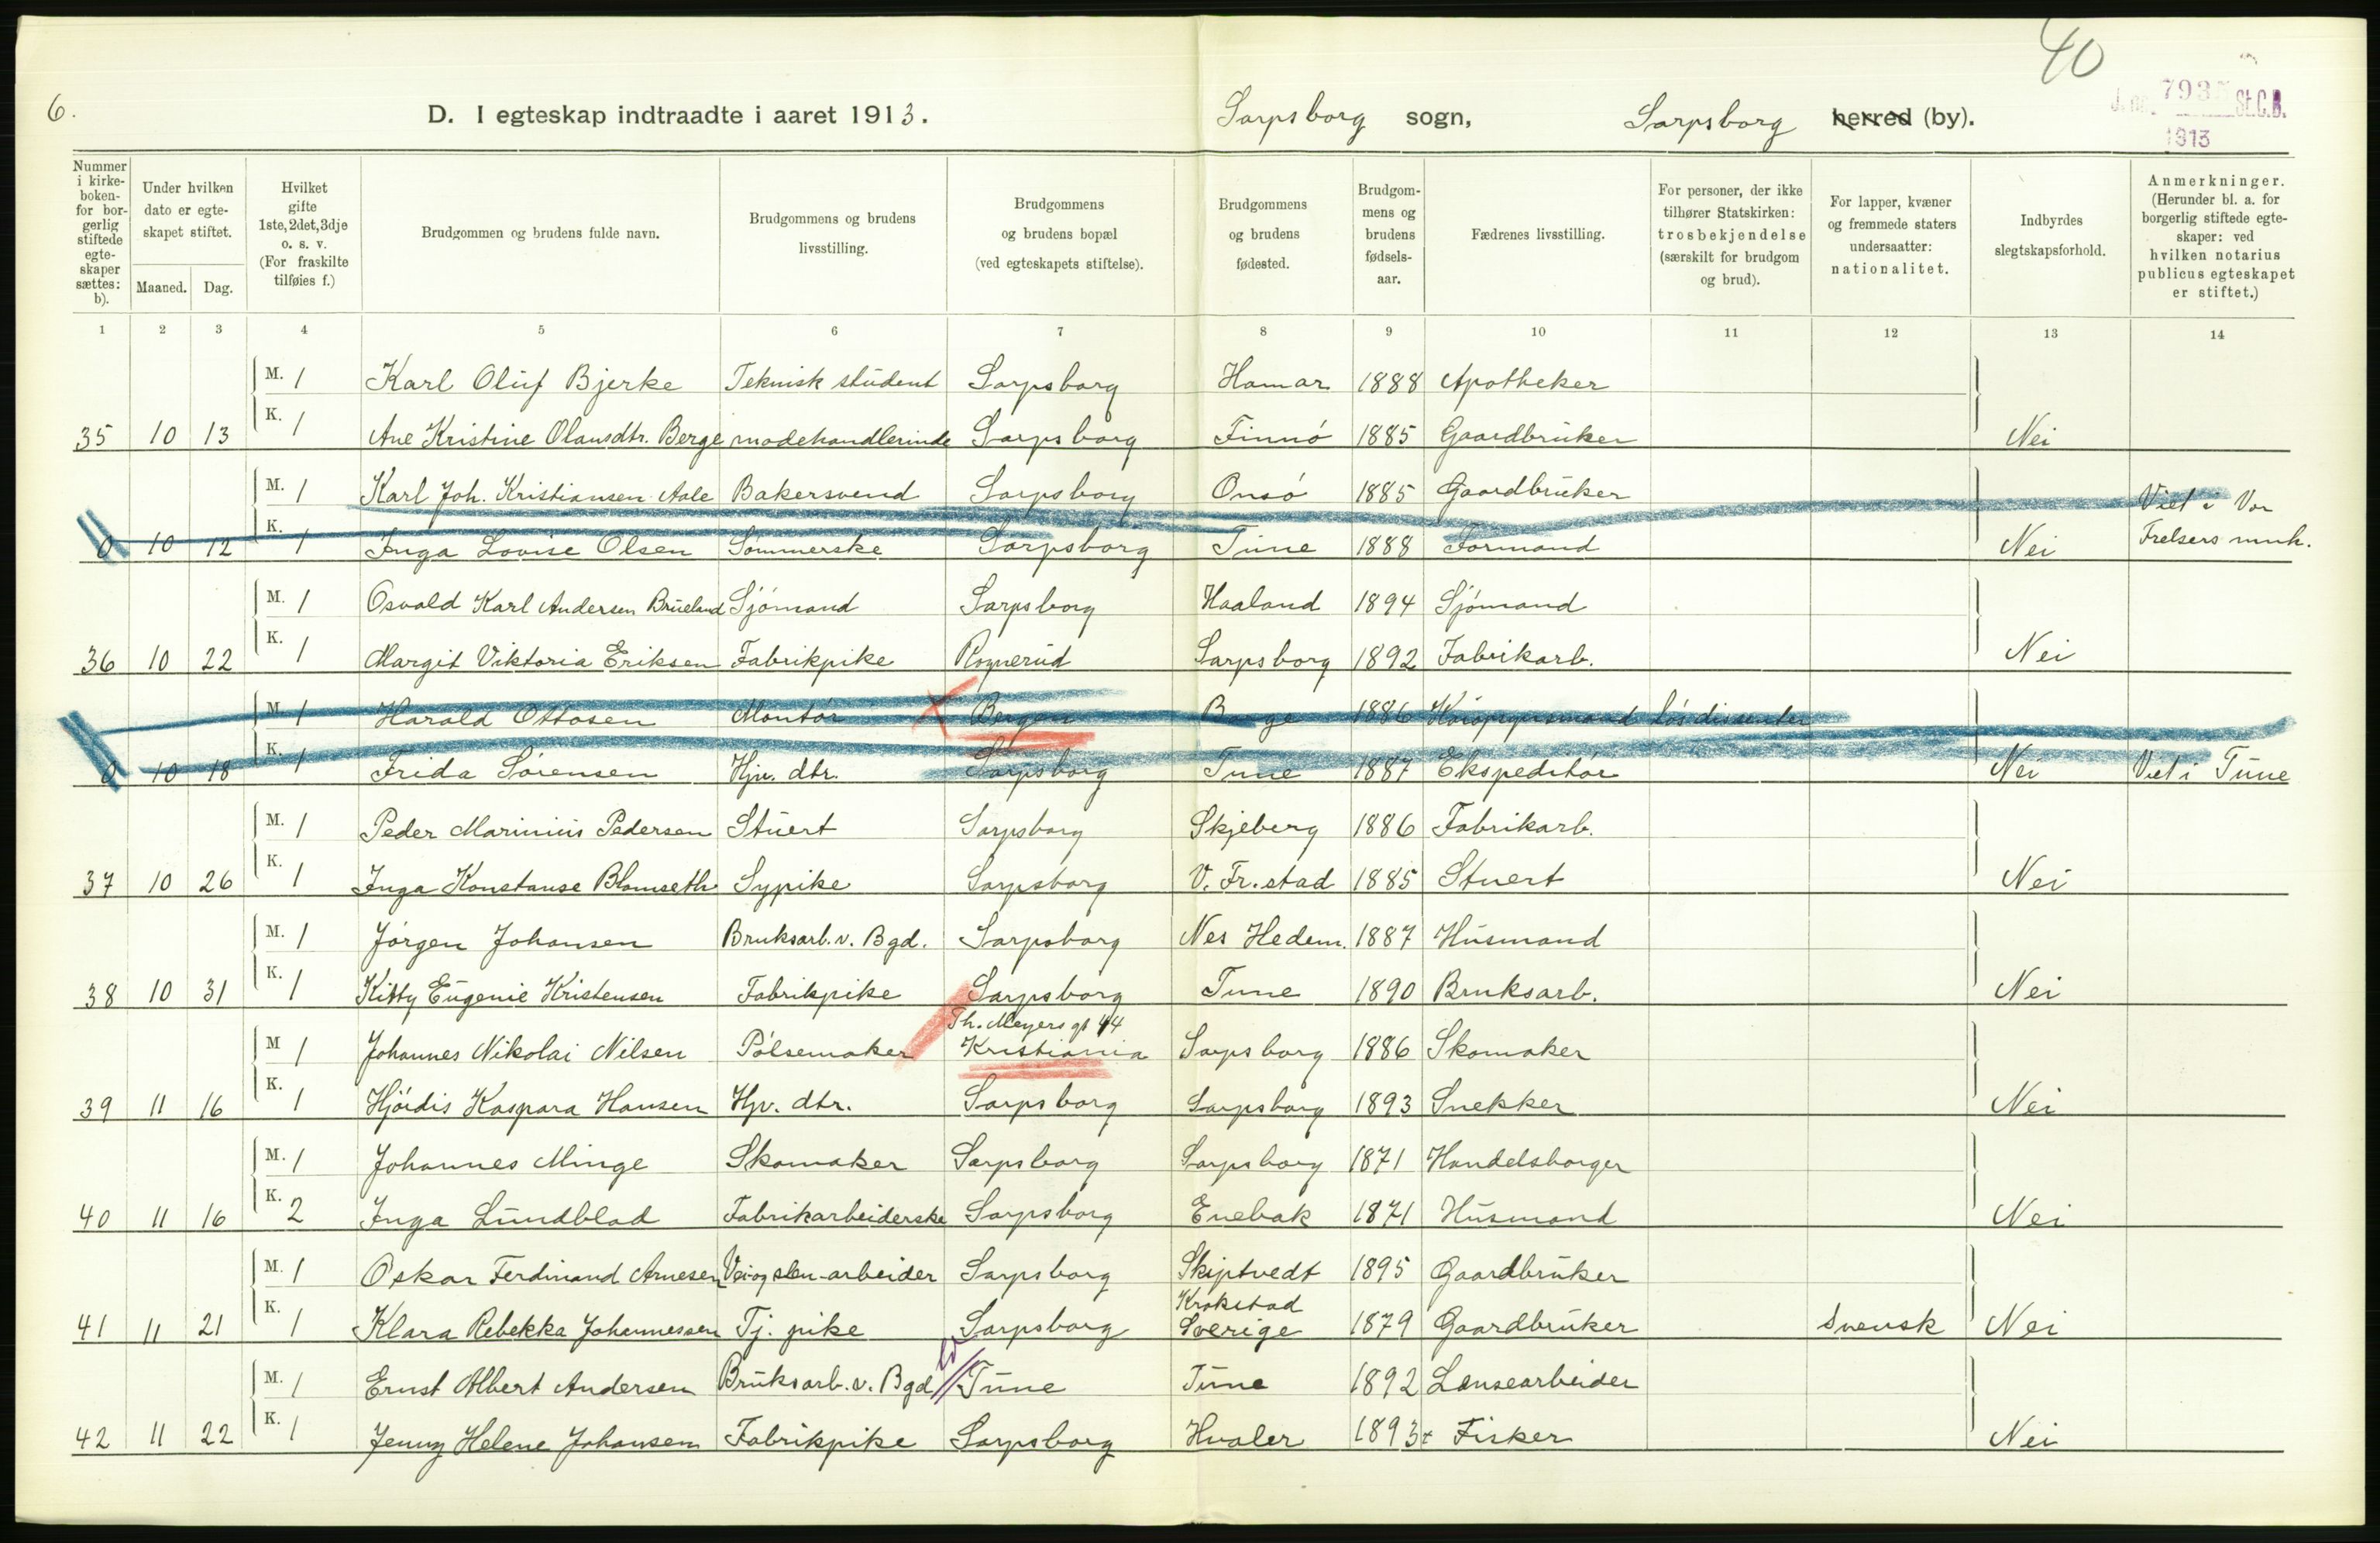 40
6.
D. I egteskap indtraadte i aaret 1913.
Sarpsborg sogn, Sarpsborg herred (by).
J. no. 793 St.C.B.
1913
Nummer i kirke-boken- for bor-gerlig stiftede egte-skaper sættes: b).
Under hvilken dato er egte-skapet stiftet.
Maaned. Dag.
Hvilket gifte 1ste, 2det, 3dje o. s. v. (For fraskilte tilføies f.)
Brudgommen og brudens fulde navn.
Brudgommens og brudens livsstilling.
Brudgommens og brudens bopæl (ved egteskapets stiftelse).
Brudgommens og brudens fødested.
Brudgom-mens og brudens fødsels-aar.
Fædrenes livsstilling.
For personer, der ikke tilhører Statskirken: trosbekjendelse (særskilt for brudgom og brud).
For lapper, kvæner og fremmede staters undersaatter: nationalitet.
Indbyrdes slegtskapsforhold.
Anmerkninger. (Herunder bl. a. for borgerlig stiftede egte-skaper: ved hvilken notarius publicus egteskapet er stiftet.)
1 2 3 4 5 6 7 8 9 10 11 12 13 14
M. 1 Karl Oluf Bjerke Teknisk student Sarpsborg Hamar 1888 Apotheker
35 10 13 K. 1 Ane Kristine Olausdtr. Berge modehandlerinde Sarpsborg Finnö 1885 Gaardbruker Nei
M. 1 Karl Joh. Kristiansen Aale Bakersvend Sarpsborg Onsö 1885 Gaardbruker Viet i Vor
0 10 12 K. 1 Inga Lovise Olsen Sömmerske Sarpsborg Tune 1888 Formand Nei Frelsers menh.
M. 1 Osvald Karl Andersen Brueland Sjömand Sarpsborg Haaland 1894 Sjömand
36 10 22 K. 1 Margit Viktoria Eriksen Fabrikpike Rognerud Sarpsborg 1892 Fabrikarb. Nei
M. 1 Harald Ottosen Montör Bergen Borge 1886 lös dissenter
0 10 18 K. 1 Frida Sörensen Hjv. dtr. Sarpsborg Tune 1887 Ekspeditör Nei Viet i Tune
M. 1 Peder Marinius Pedersen Stuert Sarpsborg Skjeberg 1886 Fabrikarb.
37 10 26 K. 1 Inga Konstanse Blomseth Sypike Sarpsborg V. Fr.stad 1885 Stuert Nei
M. 1 Jörgen Johansen Bruksarb. v. Bgd. Sarpsborg Nes Hedem. 1887 Husmand
38 10 31 K. 1 Kitty Eugenie Kristensen Fabrikpike Sarpsborg Tune 1890 Bruksarb. Nei
Th. Meyers gt 44
M 1 Johannes Nikolai Nilsen Pölsemaker Kristiania Sarpsborg 1886 Skomaker
39 11 16 K. 1 Hjördis Kaspara Hansen Hjv. dtr. Sarpsborg Sarpsborg 1893 Snekker Nei
M. 1 Johannes Minge Skomaker Sarpsborg Sarpsborg 1871 Handelsborger
40 11 16 K. 2 Inga Lundblad Fabrikarbeiderske Sarpsborg Enebak 1871 Husmand Nei
M. 1 Oskar Ferdinand Arnesen Vei og sten-arbeider Sarpsborg Skiptvedt 1895 Gaardbruker
Krokstad
41 11 21 K. 1 Klara Rebekka Johannessen Tj. pike Sarpsborg Sverige 1879 Gaardbruker Svensk Nei
M. 1 Ernst Albert Andersen Bruksarb. v. Bgd Tune Tune 1892 Lensearbeider
42 11 22 K. 1 Jenny Helene Johansen Fabrikpike Sarpsborg Hvaler 1893 Fisker Nei